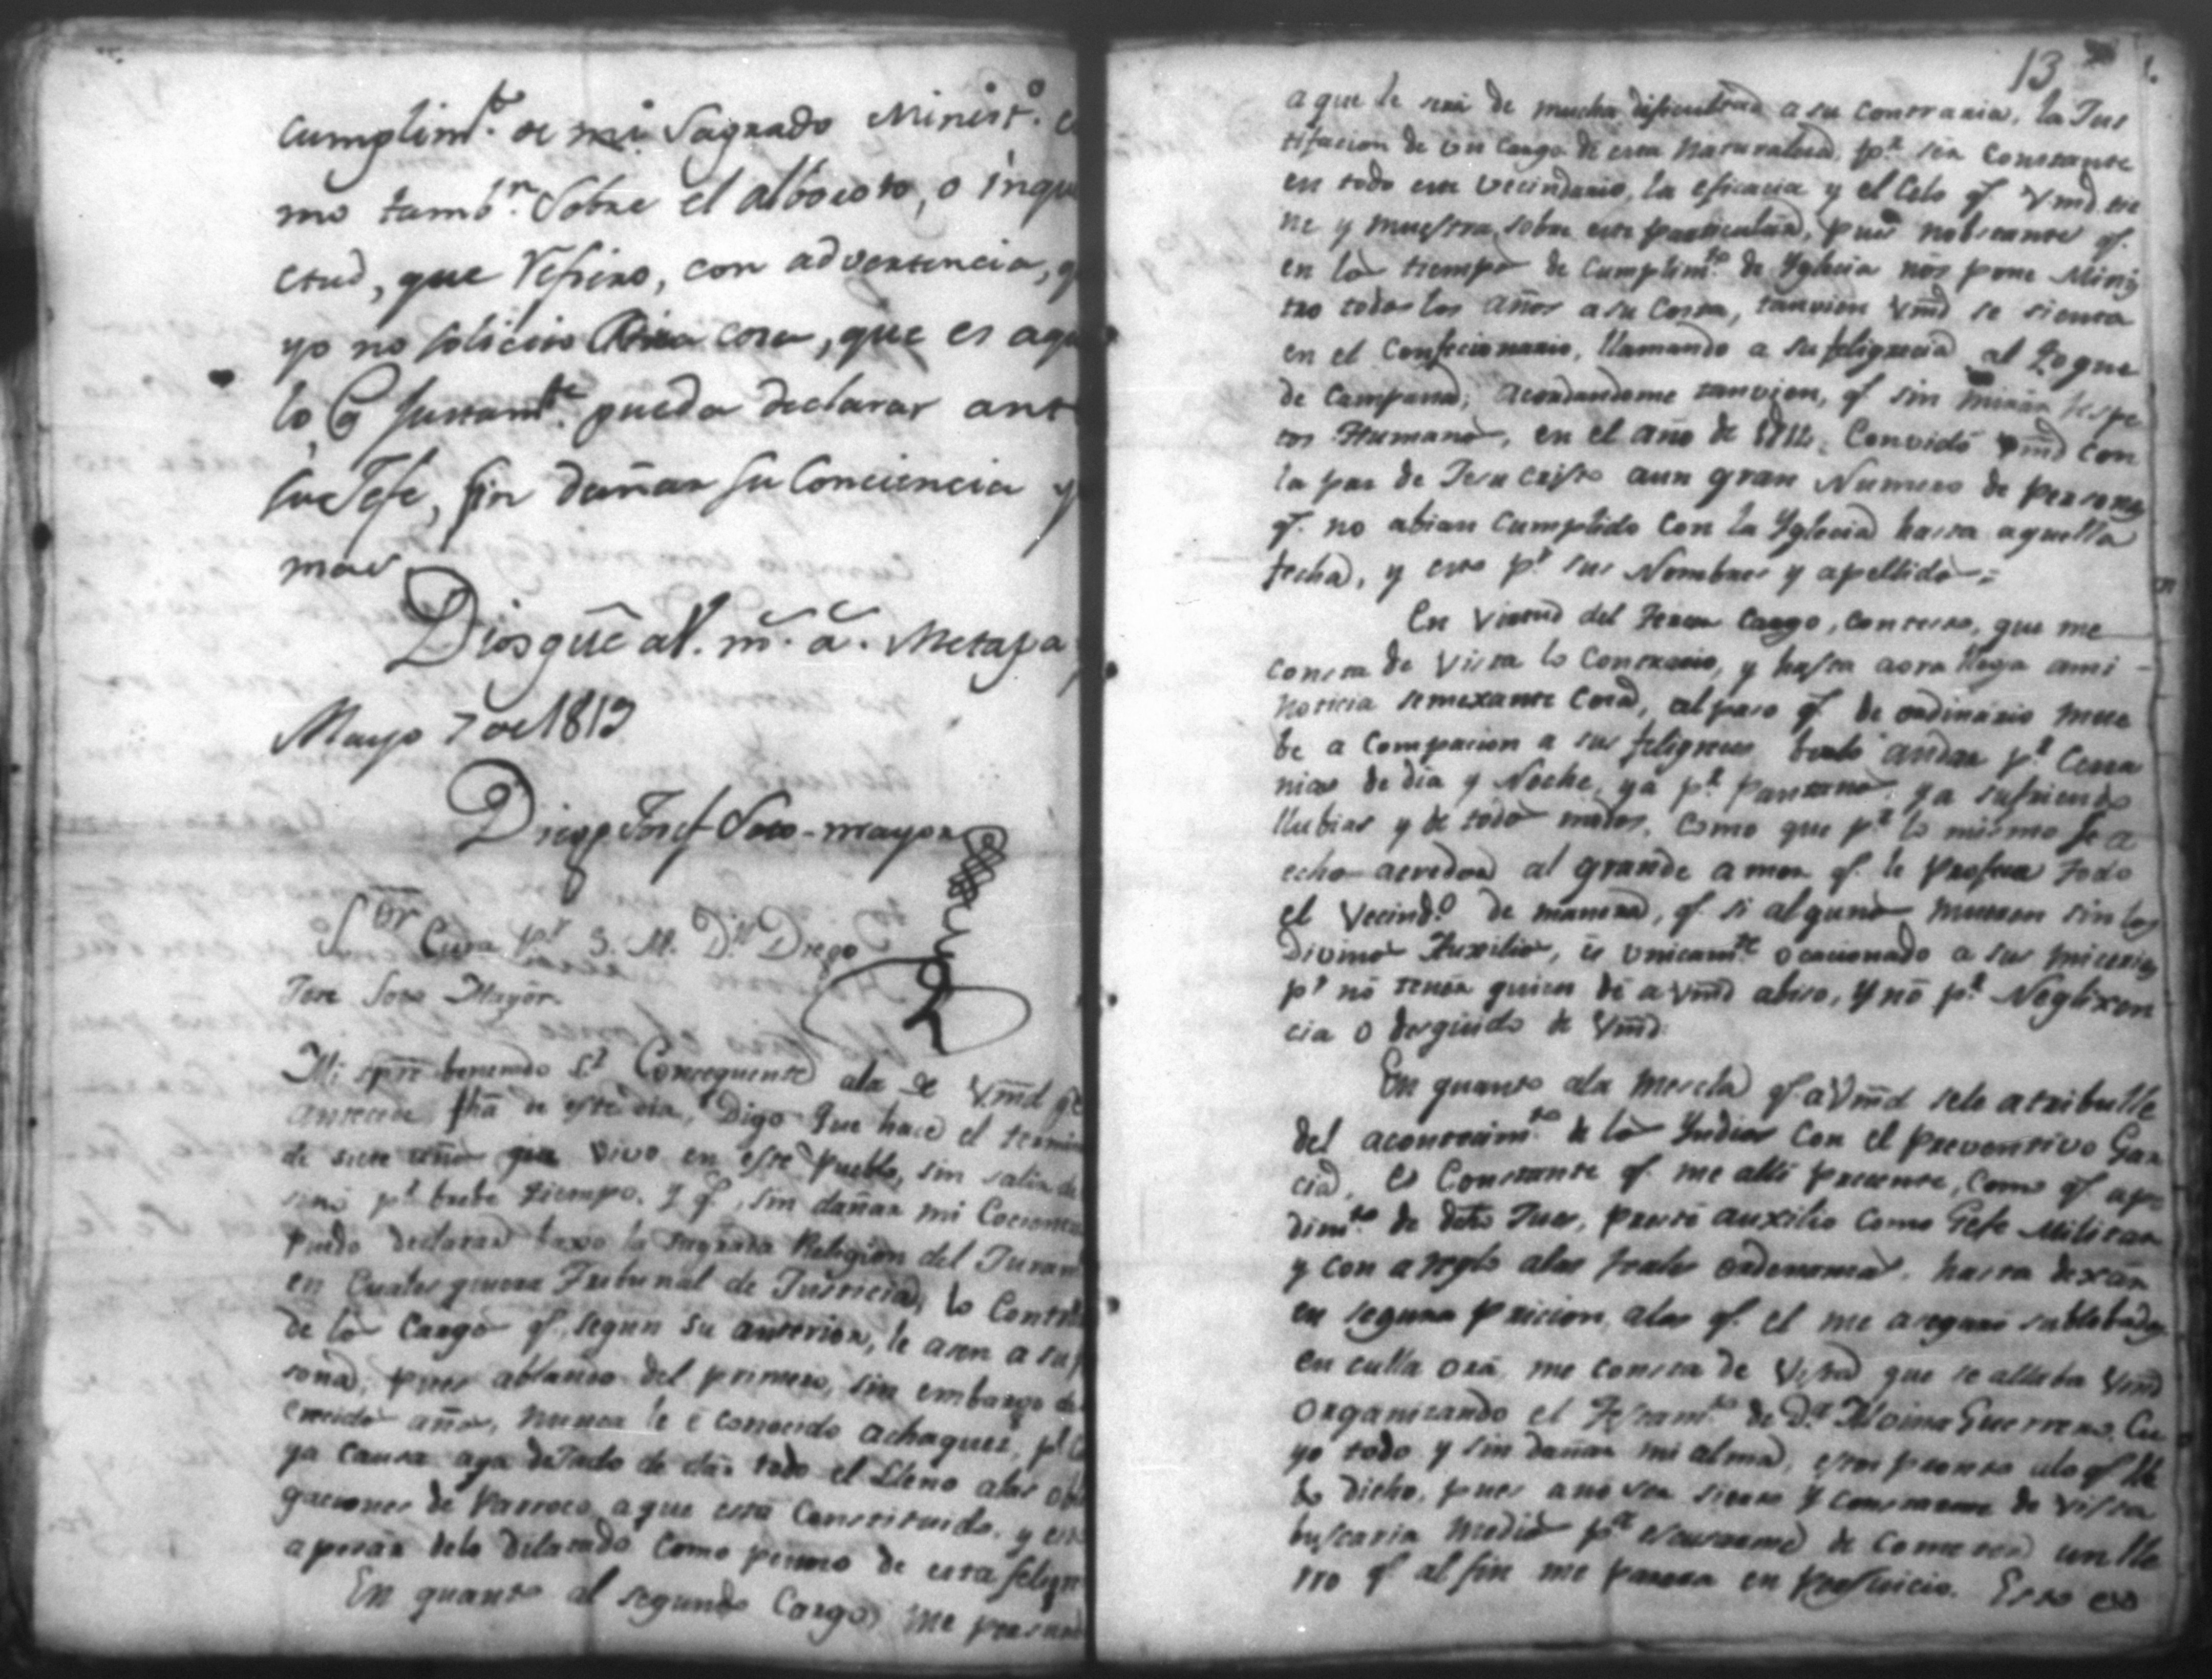 cumplim.to de mi Sagrado Minist.o co
mo tamb.n Sobre el alboroto, o inqui
etud, que Refiero, con advertencia, q
yo no solicito otra cosa, que es aque
lo, q justam.te pueda declarar ante
su Jefe, sin dañar su Conciencia y
mas
Dios gũe a V. m.s a.s Metapa
Mayo 7 de 1813
Diego Josef Soto-mayor
S.or Cura p.r S. M. D.n Diego
Jose Soto Mayor.
Mi sp̃re benerado S.r Consequente ala de Vm̃d q.e
antecede fh̃a de este dia, Digo Que hace el termino
de siete años que vivo en este Pueblo, sin salir de
sino p.r brebe tiempo. Y q.e, sin dañar mi Conciencia
puedo declarar baxo la Sagrada Religion del Juram
en Cualesquiera Tribunal de Justicia, lo Contra
de los Cargos q.e segun su anterior, le asen a su p
sona; pues ablando del primero, sin embargo de
crecidos años, nunca le é conocido achaques, p.r Cu
ya causa aya dejado de dar todo el Lleno alas obli
gaciones de Parroco a que está Constituido, y esto
apesar delo dilatado como penoso de esta feligre
En quanto al segundo Cargo, me persuad
13
a que le será de mucha dificultad a su Contraria, la Jus
tificacion de un Cargo de esta Naturaleza, p.r ser Constante
en todo este Vecindario, la eficacia y el Celo q.e Vm̃d tie
ne y muestra sobre este particular, pues nobstante q.e
en los tiempos de Cumplim.to de Yglecia nos pone Minis
tro todos los años a su Costa, tanvien Vm̃d se sienta
en el Confecionario, llamando a su feligrecia al toque
de Campana; acordandome tanvien, q.e sin mirar respe
tos Humanos, en el año de 1811, Convidó Vm̃d con
la paz de Jesu Cristo aun gran Numero de personas
q.e no abian Cumplido Con la Yglecia hasta aquella
fecha, y esto p.r sus Nombres y apellidos =
En virtud del tercer Cargo, contesto, que me
consta de vista lo Contrario, y hasta aora llega ami
noticia semexante Cosa, al paso q.e de ordinario mue
be a Compacion a sus feligreses berlo andar p.r Cerra
nias de dia y Noche, ya p.r Pantanos, ya sufriendo
llubias y de todos modos, Como que p.r lo mismo se a
echo acredor al grande amor q.e le Profesa todo
el Vecind.o de manera, q.e si algunos mueren sin los
Divinos Auxilios, es unicam.te ocacionado a sus micerias
p.r nó tener quien dé a Vm̃d abiso, y nó p.r Neglixen
cia o desguido de Vm̃d.
En quanto ala mescla q.e a Vm̃d sele atribulle
del acontecim.to de los Yndios con el preventivo Gar
cia, es Constante q.e me allé presente, como q.e ape
dim.to de dh̃o Jues, presté auxilio como Gefe Militar
y con areglo alas reales ordenansas, hasta dexar
en segura pricion, alos q.e el me aseguró sublebados
en culla ora, me consta de Vista que se allaba Vm̃d
organizando el Testam.to de D.a Guerrero. Cu
yo todo y sin dañar mi alma, estoi pronto alo q.e lle
bo dicho, pues ano ser sierto y constarme de vista
buscaria medios p.a escusarme de Cometer un lle
rro q.e al fin me parara en perjuicio. Esto es